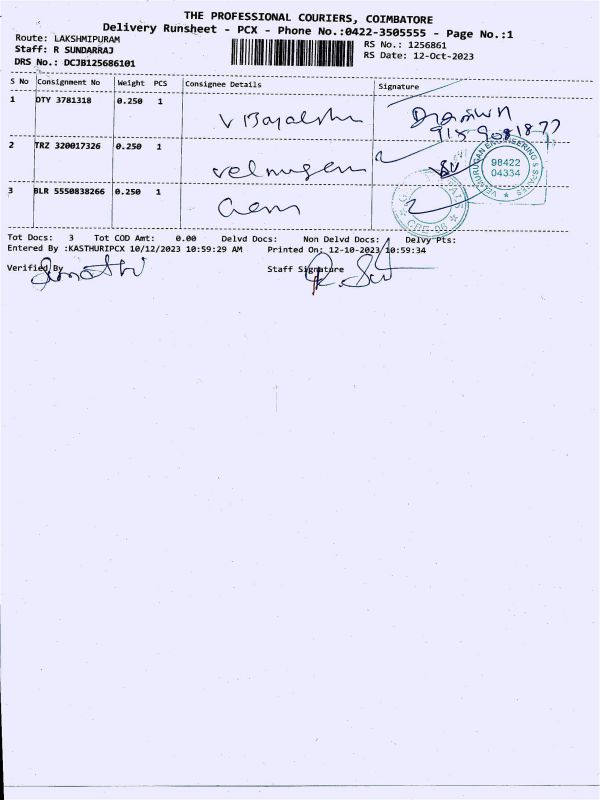 THE PROFESSIONAL COURIERS, COIMBATORE
Delivery Runsheet - PCX - Phone No.:0422-3505555 - Page No.:1
Route: LAKSHMIPURAM
RS No.: 1256861
Staff: R SUNDARRAJ
RS Date: 12-Oct-2023
DRS No.: DCJB125686101
S No Consignment No Weight PCS Consignee Details Signature
1 DTY 3781318 0.250 1
2 TRZ 320017326 0.250 1 velmugen
VELMURUGAN ENGINEERING & SPARES
98422
04334
3 BLR 5550838266 0.250 1 Gem
CBE-06
Tot Docs: 3 Tot COD Amt: 0.00 Delvd Docs: Non Delvd Docs: Delvy Pts:
Entered By :KASTHURIPCX 10/12/2023 10:59:29 AM Printed On: 12-10-2023 10:59:34
Verified By Staff Signature